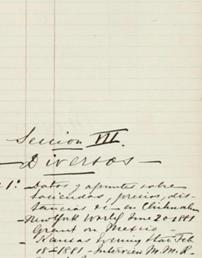 Seccion VII.
— Diversos —
1º. Datos y apuntes sobre
distancias &c en Chihuahua
— New York World June 20-1881
Grant on Mexico —
— Kansas Evening Star Feb
18 1881 — Interview M. M. R—